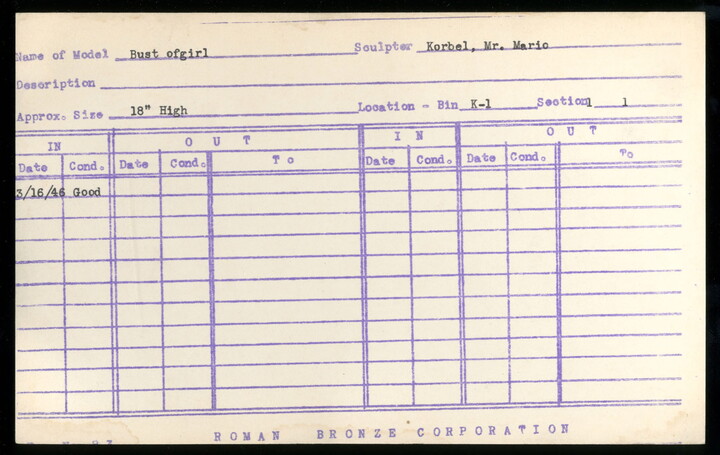 Name of Model Bust ofgirl Sculpter Korbel, Mr. Mario
Description
Approx. Size 18" High Location - Bin K-1 Section1 1
IN OUT IN OUT
Date Cond. Date Cond. To Date Cond. Date Cond. To
3/16/46 Good
ROMAN BRONZE CORPORATION